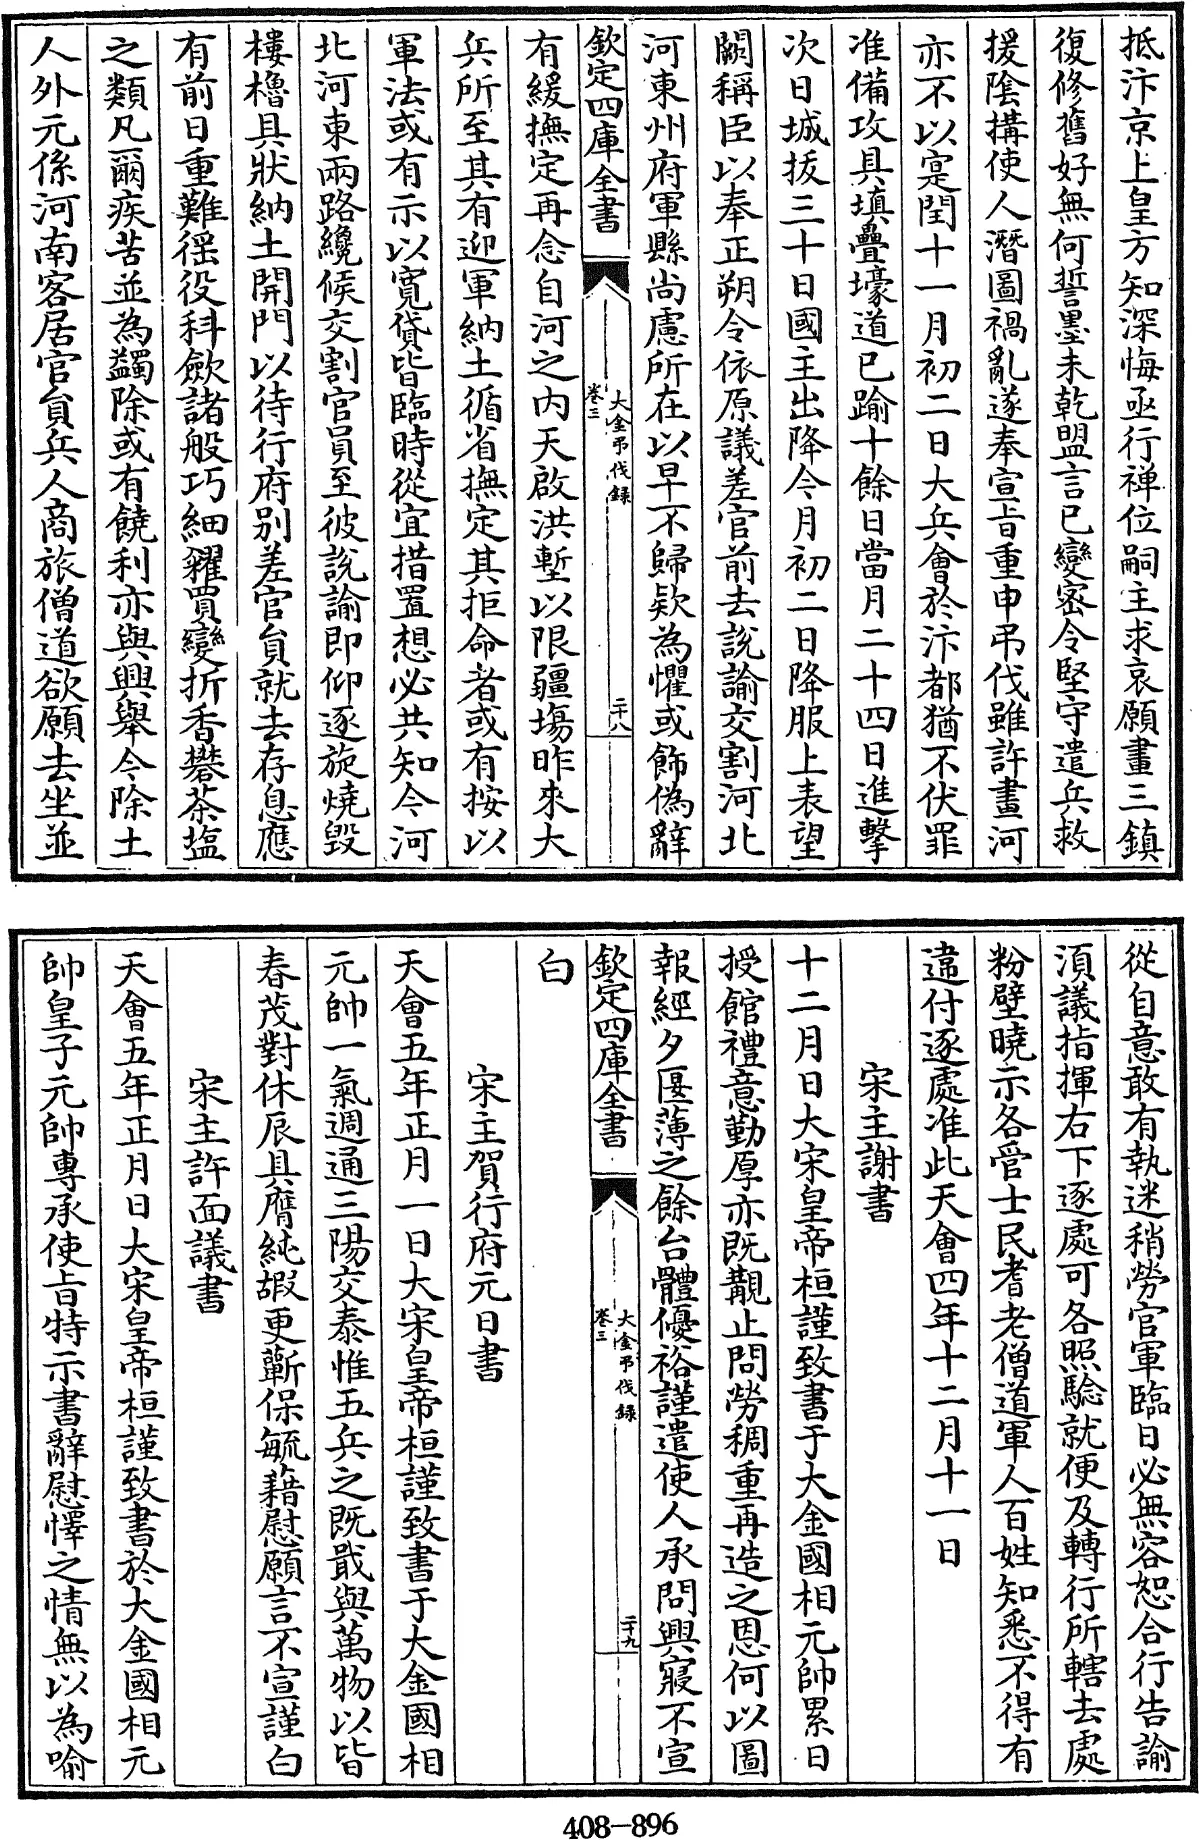 抵汴京上皇方知深悔亟行禅位嗣主求哀願畫三鎮
復修舊好無何誓墨未乾盟言已變密令堅守遣兵救
援陰搆使人潛圖禍亂遂奉宣㫖重申弔伐雖許畫河
亦不以寔閏十一月初二日大兵會於汴都猶不伏罪
准備攻具填疊壕道已踰十餘日當月二十四日進擊
次日城拔三十日國主出降今月初二日降服上表望
闕稱臣以奉正朔令依原議差官前去說諭交割河北
河東州府軍縣尚慮所在以早不歸欵為懼或飾偽辭
欽定四庫全書
大金弔伐録
卷三
二十八
有緩撫定再念自河之内天啟洪塹以限疆埸昨來大
兵所至其有迎軍納土循省撫定其拒命者或有按以
軍法或有示以寬貸皆臨時從宜措置想必共知今河
北河東兩路纔候交割官員至彼說諭即仰逐旋燒毀
樓櫓具狀納土開門以待行府别差官員就去存息應
有前日重難徭役科歛諸般巧細糴買變折香礬茶塩
之類凡爾疾苦並為蠲除或有饒利亦與興舉今除土
人外元係河南客居官員兵人商旅僧道欲願去坐並
從自意敢有執迷稍勞官軍臨日必無容恕合行告諭
湏議指揮右下逐處可各照驗就便及轉行所轄去處
粉壁曉示各管士民耆老僧道軍人百姓知悉不得有
違付逐處准此天會四年十二月十一日
宋主謝書
十二月日大宋皇帝桓謹致書于大金國相元帥累日
授館禮意勤厚亦既覯止問勞稠重再造之恩何以圖
報經夕偃薄之餘台體優裕謹遣使人承問興寢不宣
欽定四庫全書
大金弔伐録
卷三
二十九
白
宋主賀行府元日書
天會五年正月一日大宋皇帝桓謹致書于大金國相
元帥一氣週通三陽交泰惟五兵之既戢與萬物以皆
春茂對休辰具膺純嘏更蘄保毓藉慰願言不宣謹白
宋主許面議書
天會五年正月日大宋皇帝桓謹致書於大金國相元
帥皇子元帥專承使㫖特示書辭慰懌之情無以為喻
408-896